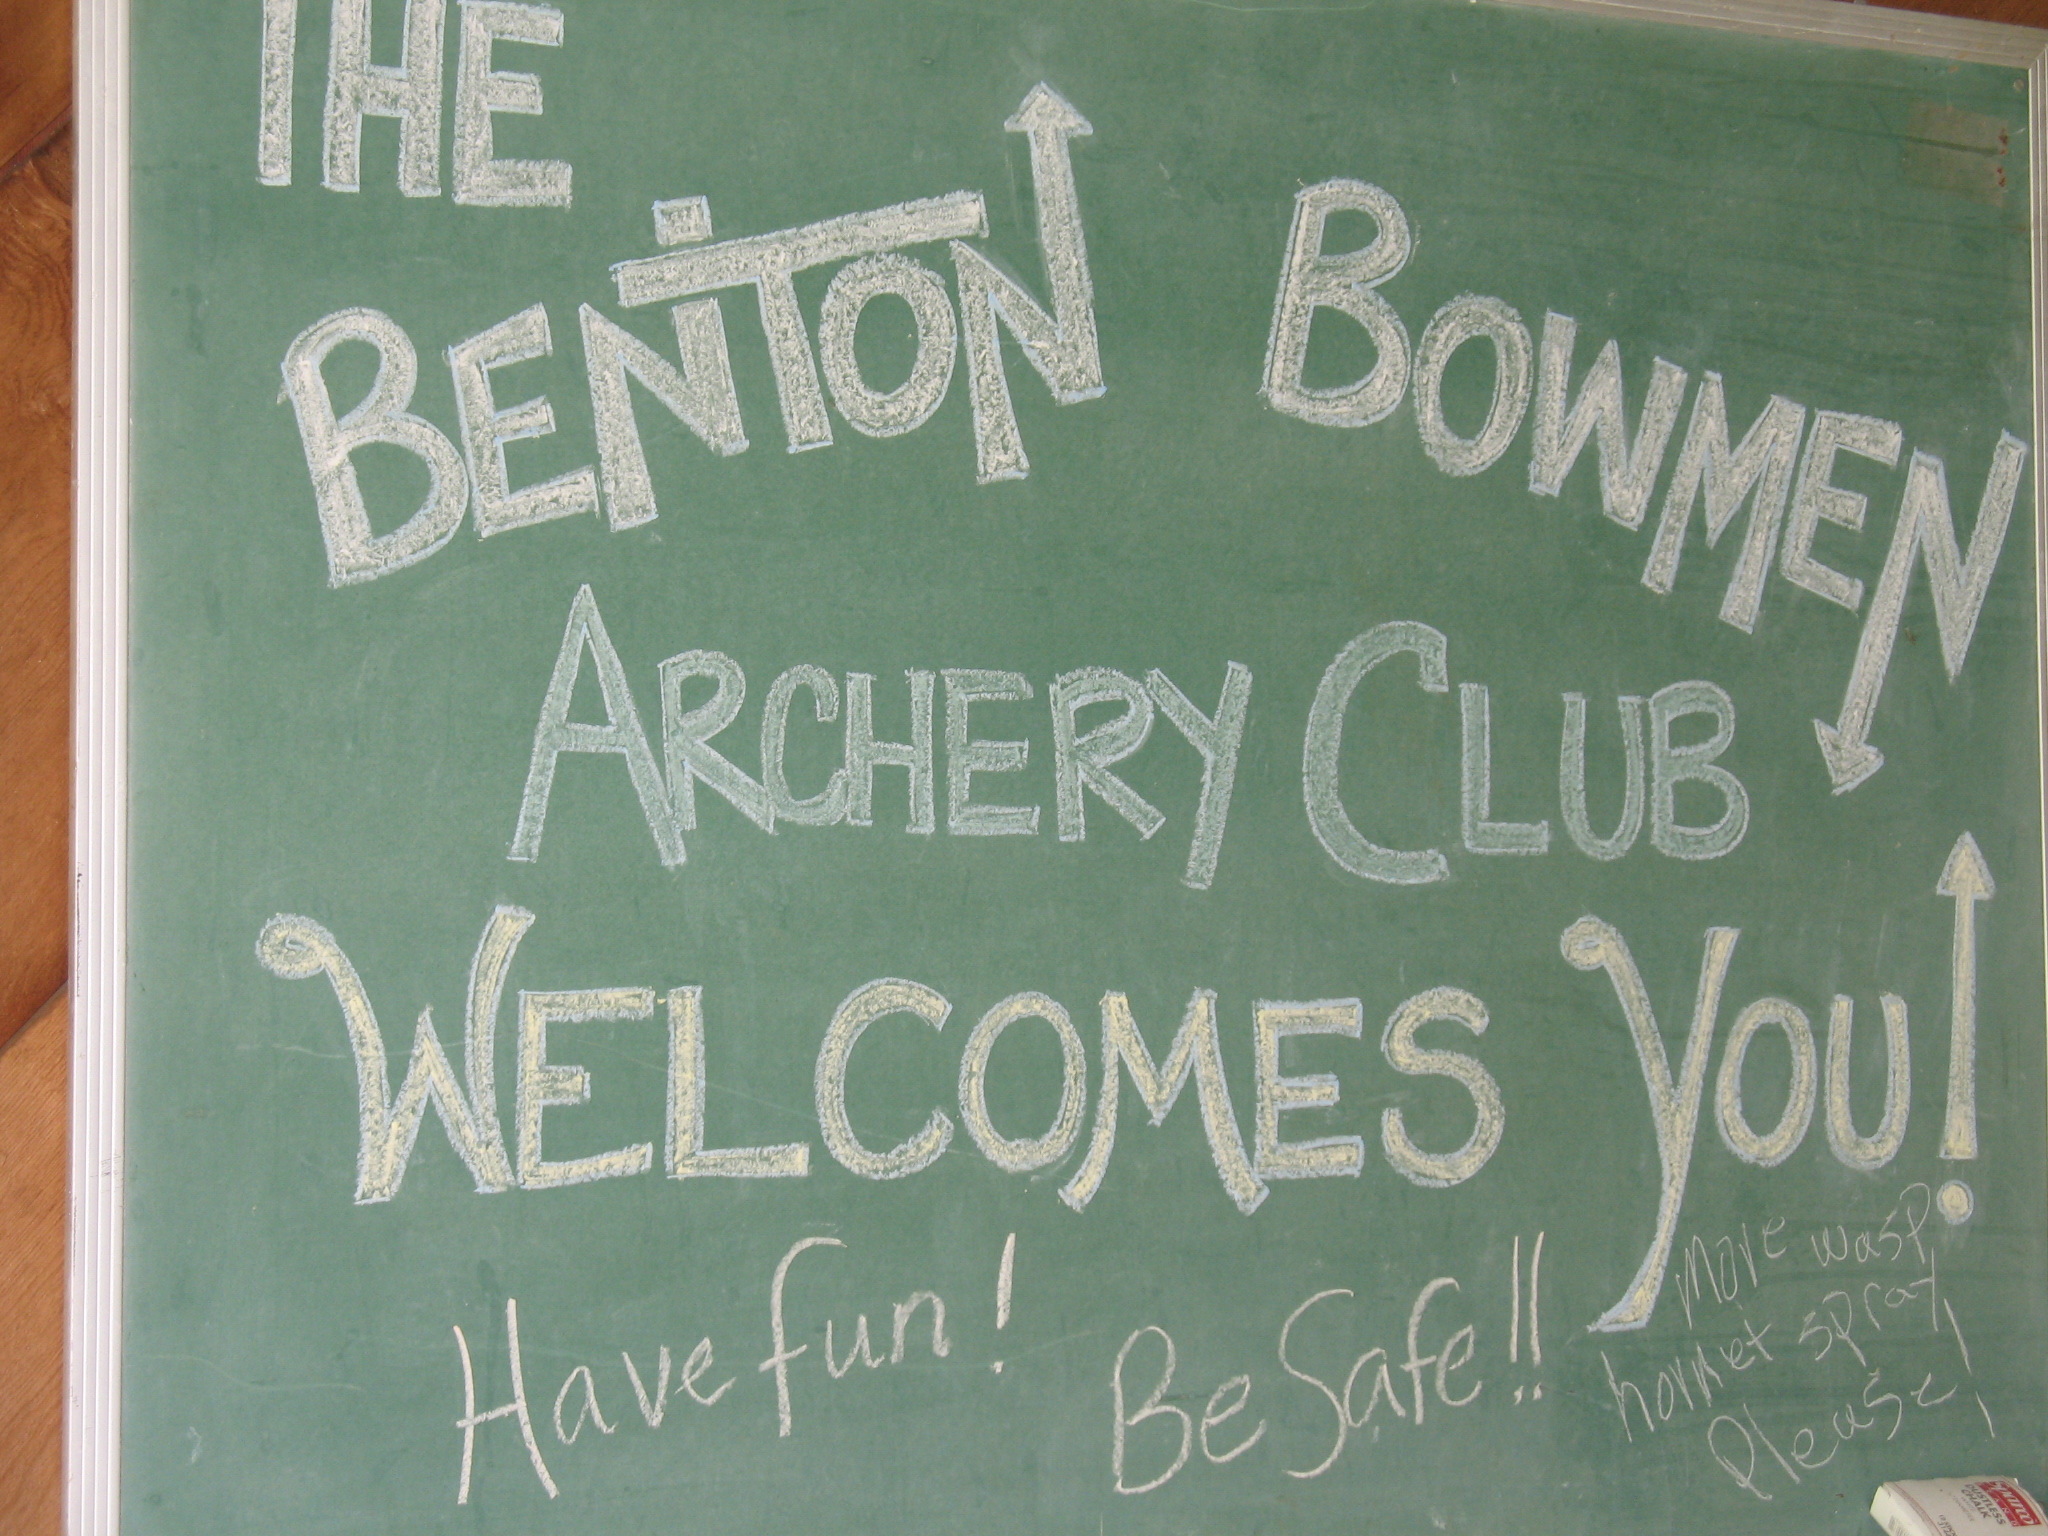 THE
BENTON BOWMEN
ARCHERY CLUB
WELCOMES YOU!
Have fun! Be Safe!!
more wasp
hornet spray
Please!
DUSTLESS
CHALK